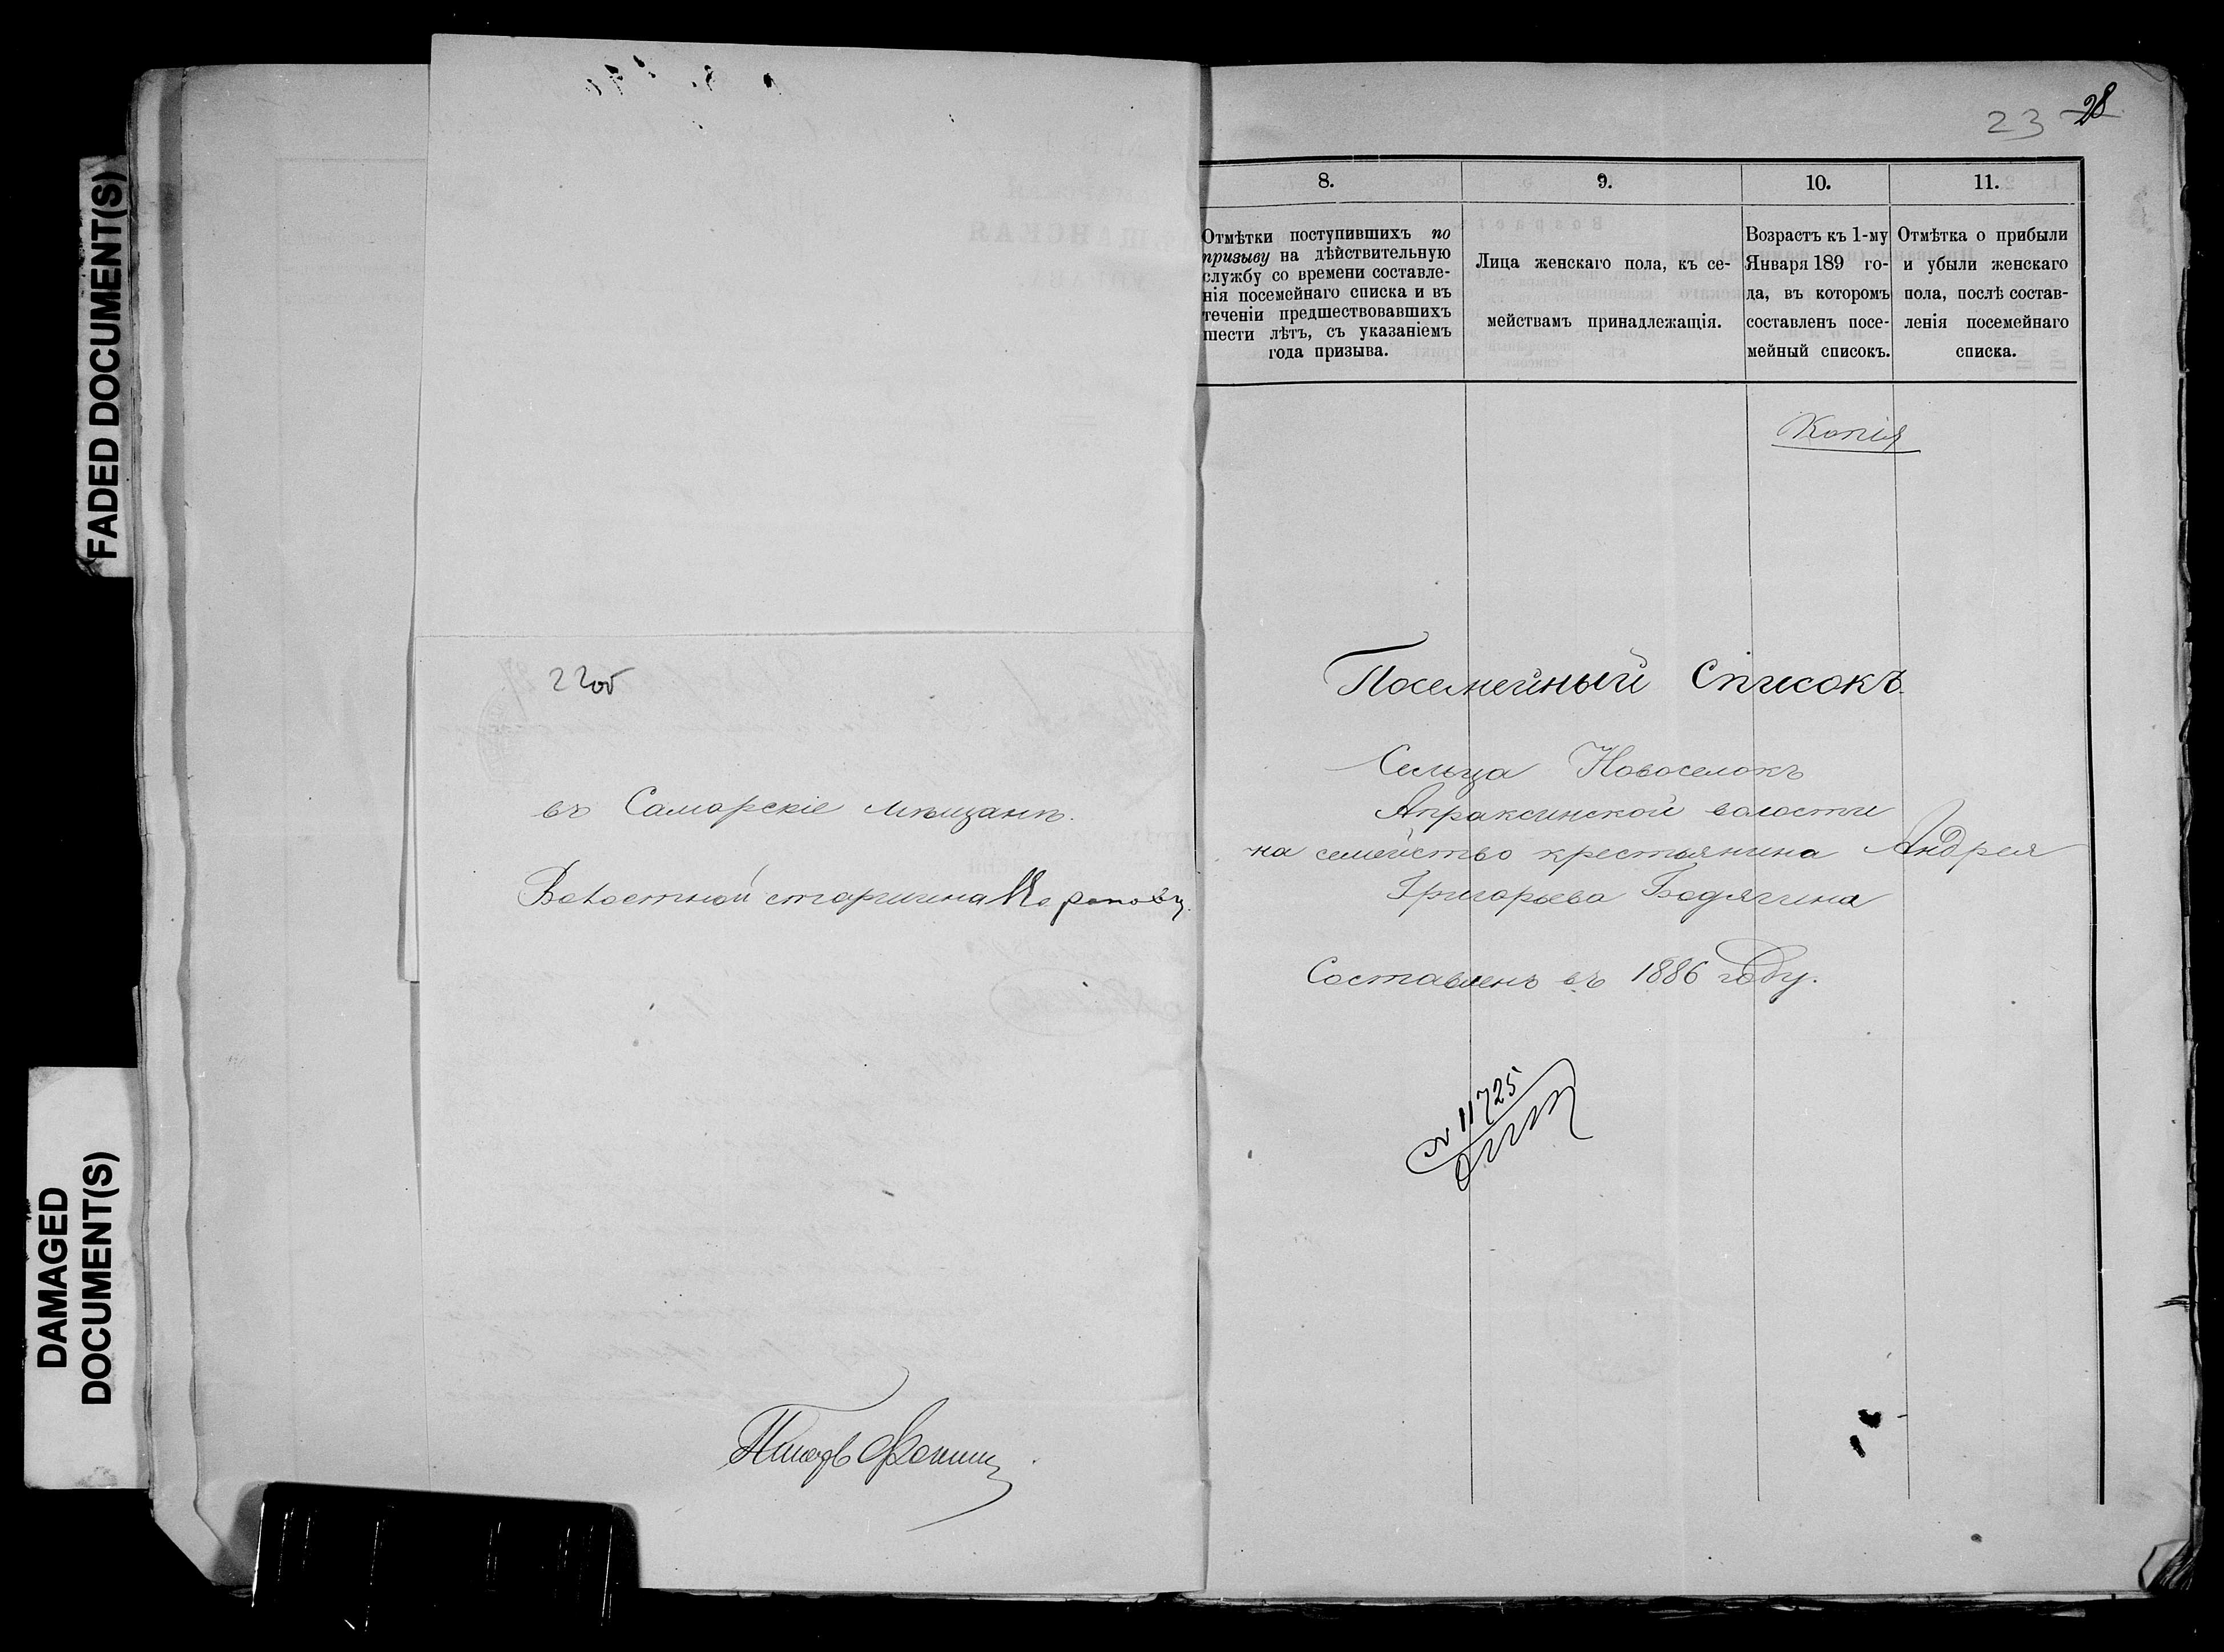 FADED DOCUMENT(S)
DAMAGED
DOCUMENT(S)
22об
въ Самарскіе мѣщане.
Волостной старшина
23 28
8.
Отмѣтки поступившихъ по
призыву на дѣйствительную
службу со времени составле-
нія посемейнаго списка и въ
теченіи предшествовавшихъ
шести лѣтъ, съ указаніемъ
года призыва.
9.
Лица женскаго пола, къ се-
мействамъ принадлежащія.
10.
Возрастъ къ 1-му
Января 189 го-
да, въ которомъ
составленъ посе-
мейный списокъ.
11.
Отмѣтка о прибыли
и убыли женскаго
пола, послѣ состав-
ленія посемейнаго
списка.
Копія
Посемейный Списокъ
Сельца Новоселокъ
Апраксинской волости
на семейство крестьянина Андрея
Григорьева Бодягина
Составленъ въ 1886 году.
№ 11725